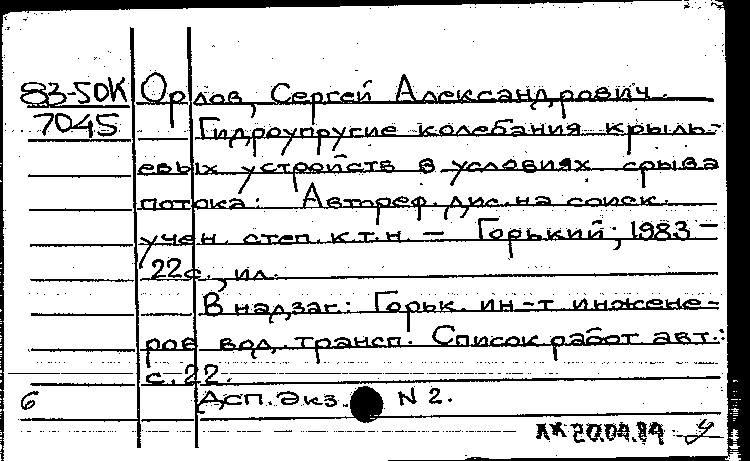 83-50К Орлов, Сергей Александрович.
7045 Гидроупругие колебания крыль-
евых устройств в условиях срыва
потока: Автореф. дис. на соиск.
учен. степ. к.т.н. – Горький, 1983 –
22 с., ил.
В надзаг.: Горьк. ин-т инжене-
ров вод. трансп. Список работ авт.:
с. 22.
6 Асп. Экз. N 2.
20.04.84